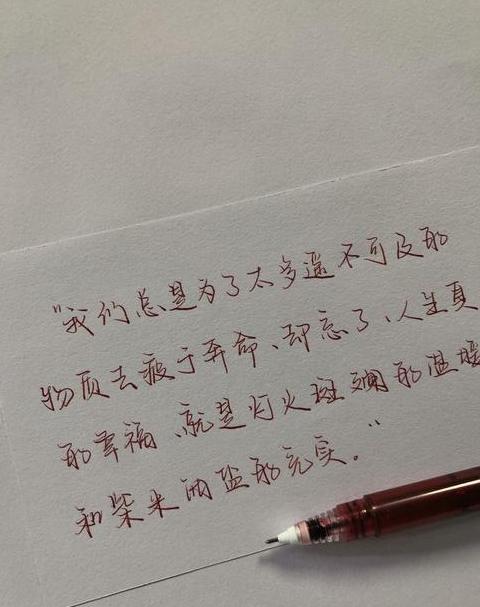 "我们总是为了太多遥不可及的
物质去疲于奔命、却忘了、人生真
的幸福、就是灯火斑斓的温暖
和柴米油盐的充实。"